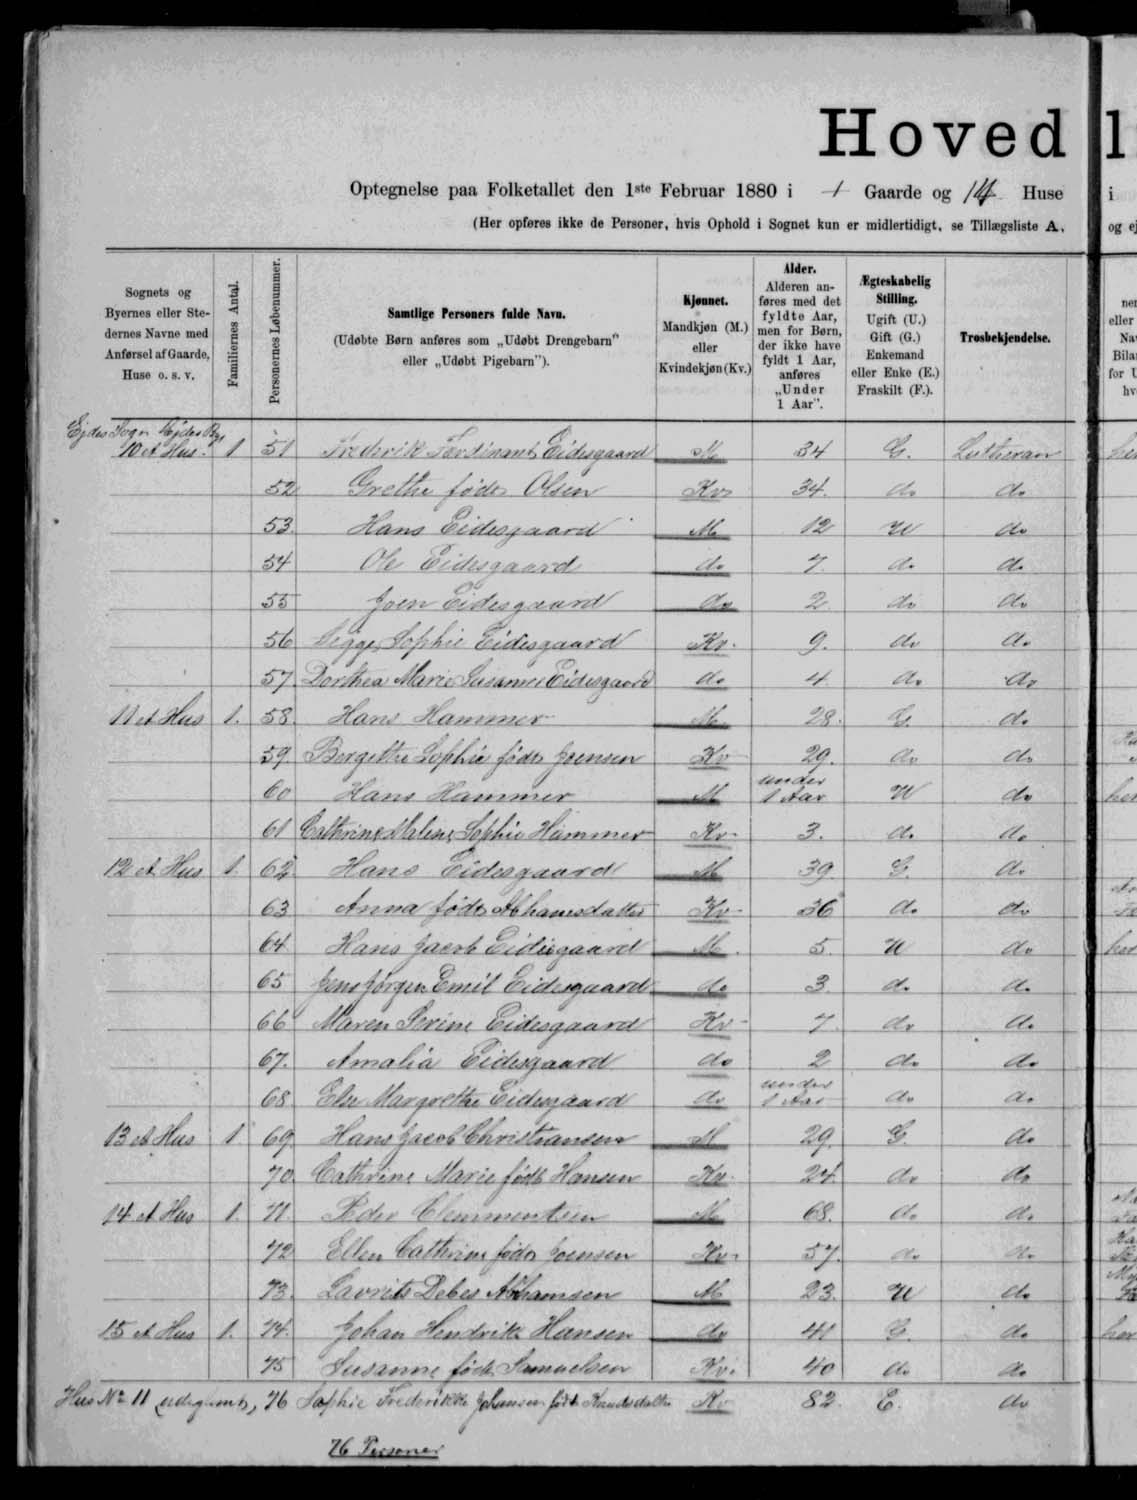 Hoved
Optegnelse paa Folketallet den 1ste Februar 1880 i 1 Gaarde og 14 Huse
(Her opføres ikke de Personer, hvis Ophold i Sognet kun er midlertidigt, se Tillægsliste A.
Sognets og Byernes eller Stedernes Navne med Anførsel af Gaarde, Huse o. s. v.
Familiernes Antal.
Personernes Løbenummer.
Samtlige Personers fulde Navn.
(Udøbte Børn anføres som „Udøbt Drengebarn" eller „Udøbt Pigebarn").
Kjønnet.
Mandkjøn (M.) eller Kvindekjøn (Kv.)
Alder.
Alderen anføres med det fyldte Aar, men for Børn, der ikke have fyldt 1 Aar, anføres „Under 1 Aar".
Ægteskabelig Stilling.
Ugift (U.) Gift (G.) Enkemand eller Enke (E.) Fraskilt (F.).
Trosbekjendelse.
Ejdes Sogn Ejdes By
10 et Hus. 1 51 Frederik Ferdinant Eidesgaard M 34 G. Lutheran
52 Grethe født Olsen Kv 34. do do
53. Hans Eidesgaard M 12 U do
54 Ole Eidesgaard do 7. do do
55 Joen Eidesgaard do 2 do do
56 Sigge Sophie Eidesgaard Kv. 9. do do
57. Dorthea Marie Susanne Eidesgaard do 4. do do
11 et Hus 1. 58. Hans Hammer M 28. G. do
59. Bergethe Sophie født Joensen Kv 29. do do
60 Hans Hammer M under 1 Aar U do
61 Cathrine Malene Sophie Hammer Kv. 3. do do
12 et Hus 1. 62 Hans Eidesgaard M 39. G. do
63 Anna født Abhamsdatter Kv 36 do do
64 Hans Jacob Eidesgaard M. 5. U do
65 Jens Jørgen Emil Eidesgaard do 3. do do
66 Maren Serine Eidesgaard Kv 7. do do
67. Amalia Eidesgaard do 2 do do
68 Else Margrethe Eidesgaard do under 1 Aar do do
13 et Hus 1. 69 Hans Jacob Christiansen M 29. G. do
70. Cathrine Marie født Hansen Kv. 24. do do
14 et Hus 1. 71. Peder Clemmentsen M 68. do do
72 Ellen Cathrine født Joensen Kv. 57. do do
73. Lavrits Debes Abhamsen M 23. U do
15 et Hus 1. 74. Johan Hendrik Hansen do 41 G. do
75 Susanne født Samuelsen Kv. 40 do do
Hus No 11 (udeglemt) 76 Sophie Frederikke Johansen født Knudsdatter Kv 82. E. do
76 Personer